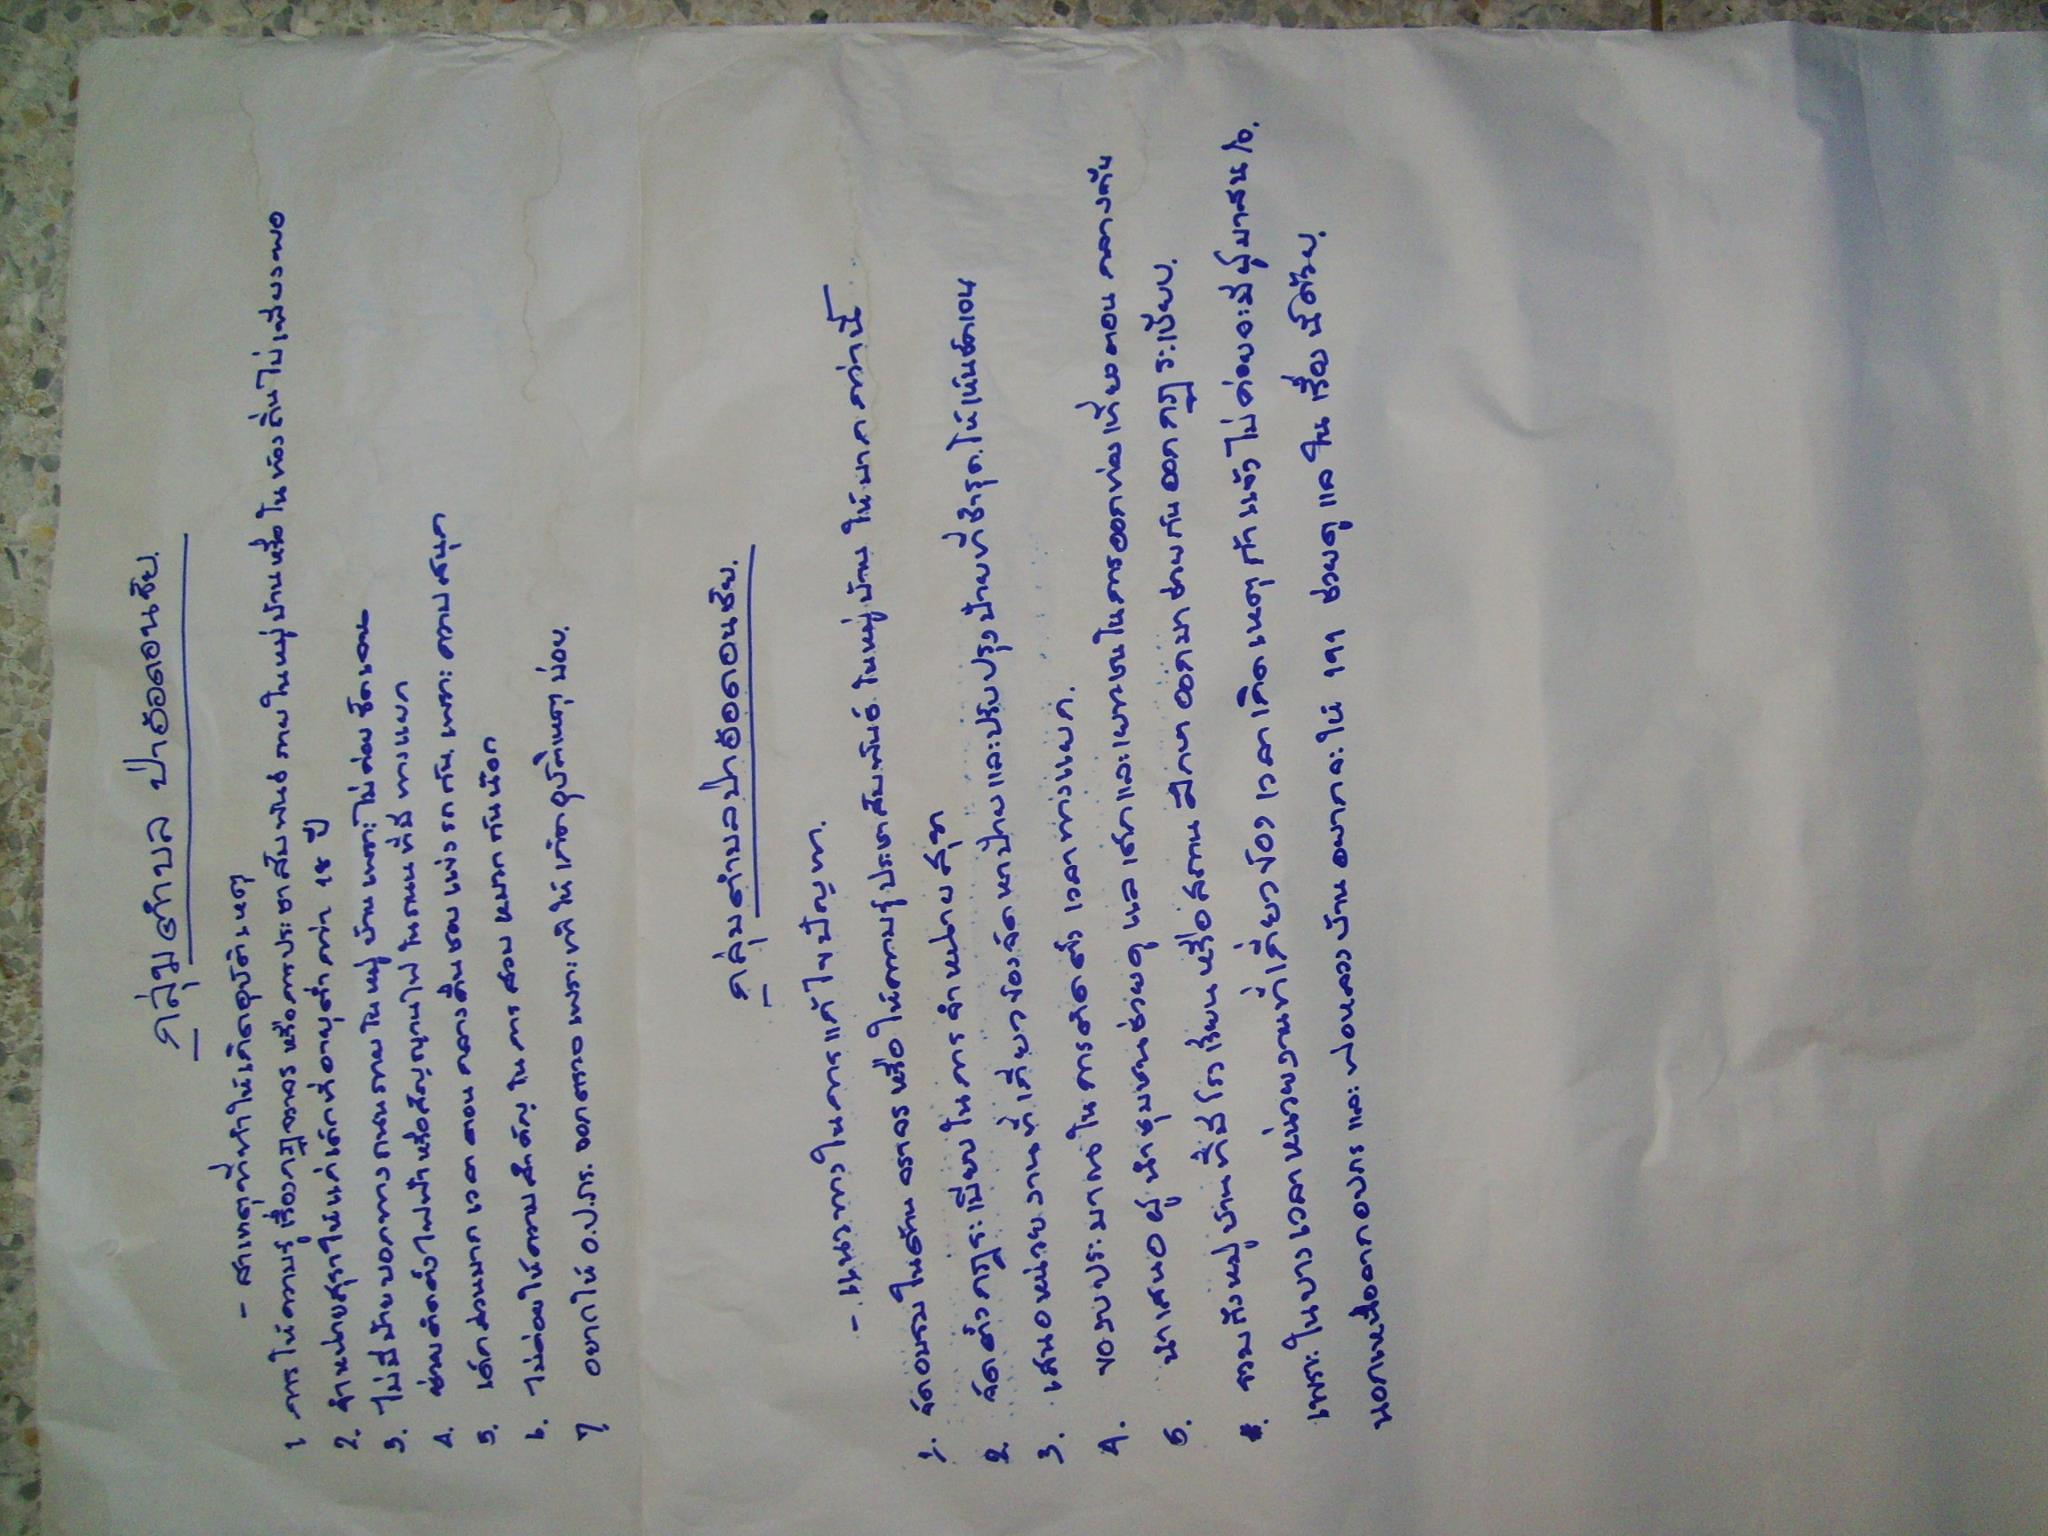 กลุ่มตำบล ป่าอ้อดอนชัย.
- สาเหตุที่ทำให้เกิดอุบัติเหตุ
1 การให้ความรู้เรื่องกฎจราจร หรือการประชาสัมพันธ์ ภายในหมู่บ้านหรือในท้องถิ่นไม่เพียงพอ
2. จำหน่ายสุราให้แก่เด็กที่อายุต่ำกว่า 18 ปี
3. ไม่มีป้ายบอกทาง ถนนภายในหมู่บ้าน เพราะไม่ค่อยชัดเจน
4. ช่วยติดตั้งไฟฟ้าหรือสัญญานไฟ ในถนนที่มีทางแยก
5. เด็กส่วนมาก เวลาตอนกลางคืนชอบแข่งรถกัน เพราะความสนุก
6. ไม่ค่อยให้ความสำคัญในการสวมหมวกกันน๊อก
7 อยากให้ อ.ป.ภร. ออกตรวจ เพราะทำให้เกิดอุบัติเหตุบ่อย.
กลุ่มตำบลป่าอ้อดอนชัย.
- แนวทางในการแก้ไขปัญหา.
1. จัดอบรมในด้านจราจร หรือให้ความรู้ประชาสัมพันธ์ ในหมู่บ้านให้มากกว่านี้
2 จัดตั้งกฎระเบียบในการจำหน่ายสุรา
3. เสนอหน่วยงานที่เกี่ยวข้องจัดหาป้ายและปรับปรุงป้ายที่ชำรุด ให้เห็นชัดเจน
4. ของบประมาณในการติดตั้ง เวลาทางแยก.
5. นำเสนอผู้นำชุมชนช่วยดูแลเด็กและเยาวชนในการออกท่องเที่ยวตอนกลางคืน
รวมถึงหมู่บ้านที่มีโรงเรียนหรือสถานศึกษาออกมาช่วยกันออกกฎระเบียบ.
เพราะในบางเวลาหน่วยงานที่เกี่ยวข้อง เวลาเกิดเหตุการ์แล้วไม่ค่อยจะมีผู้มาสนใจ.
นอกเหนือจากอปภร และพ่อหลวงบ้าน อยากจะให้ 191 ช่วยดูแลในเรื่องนี้ด้วย.